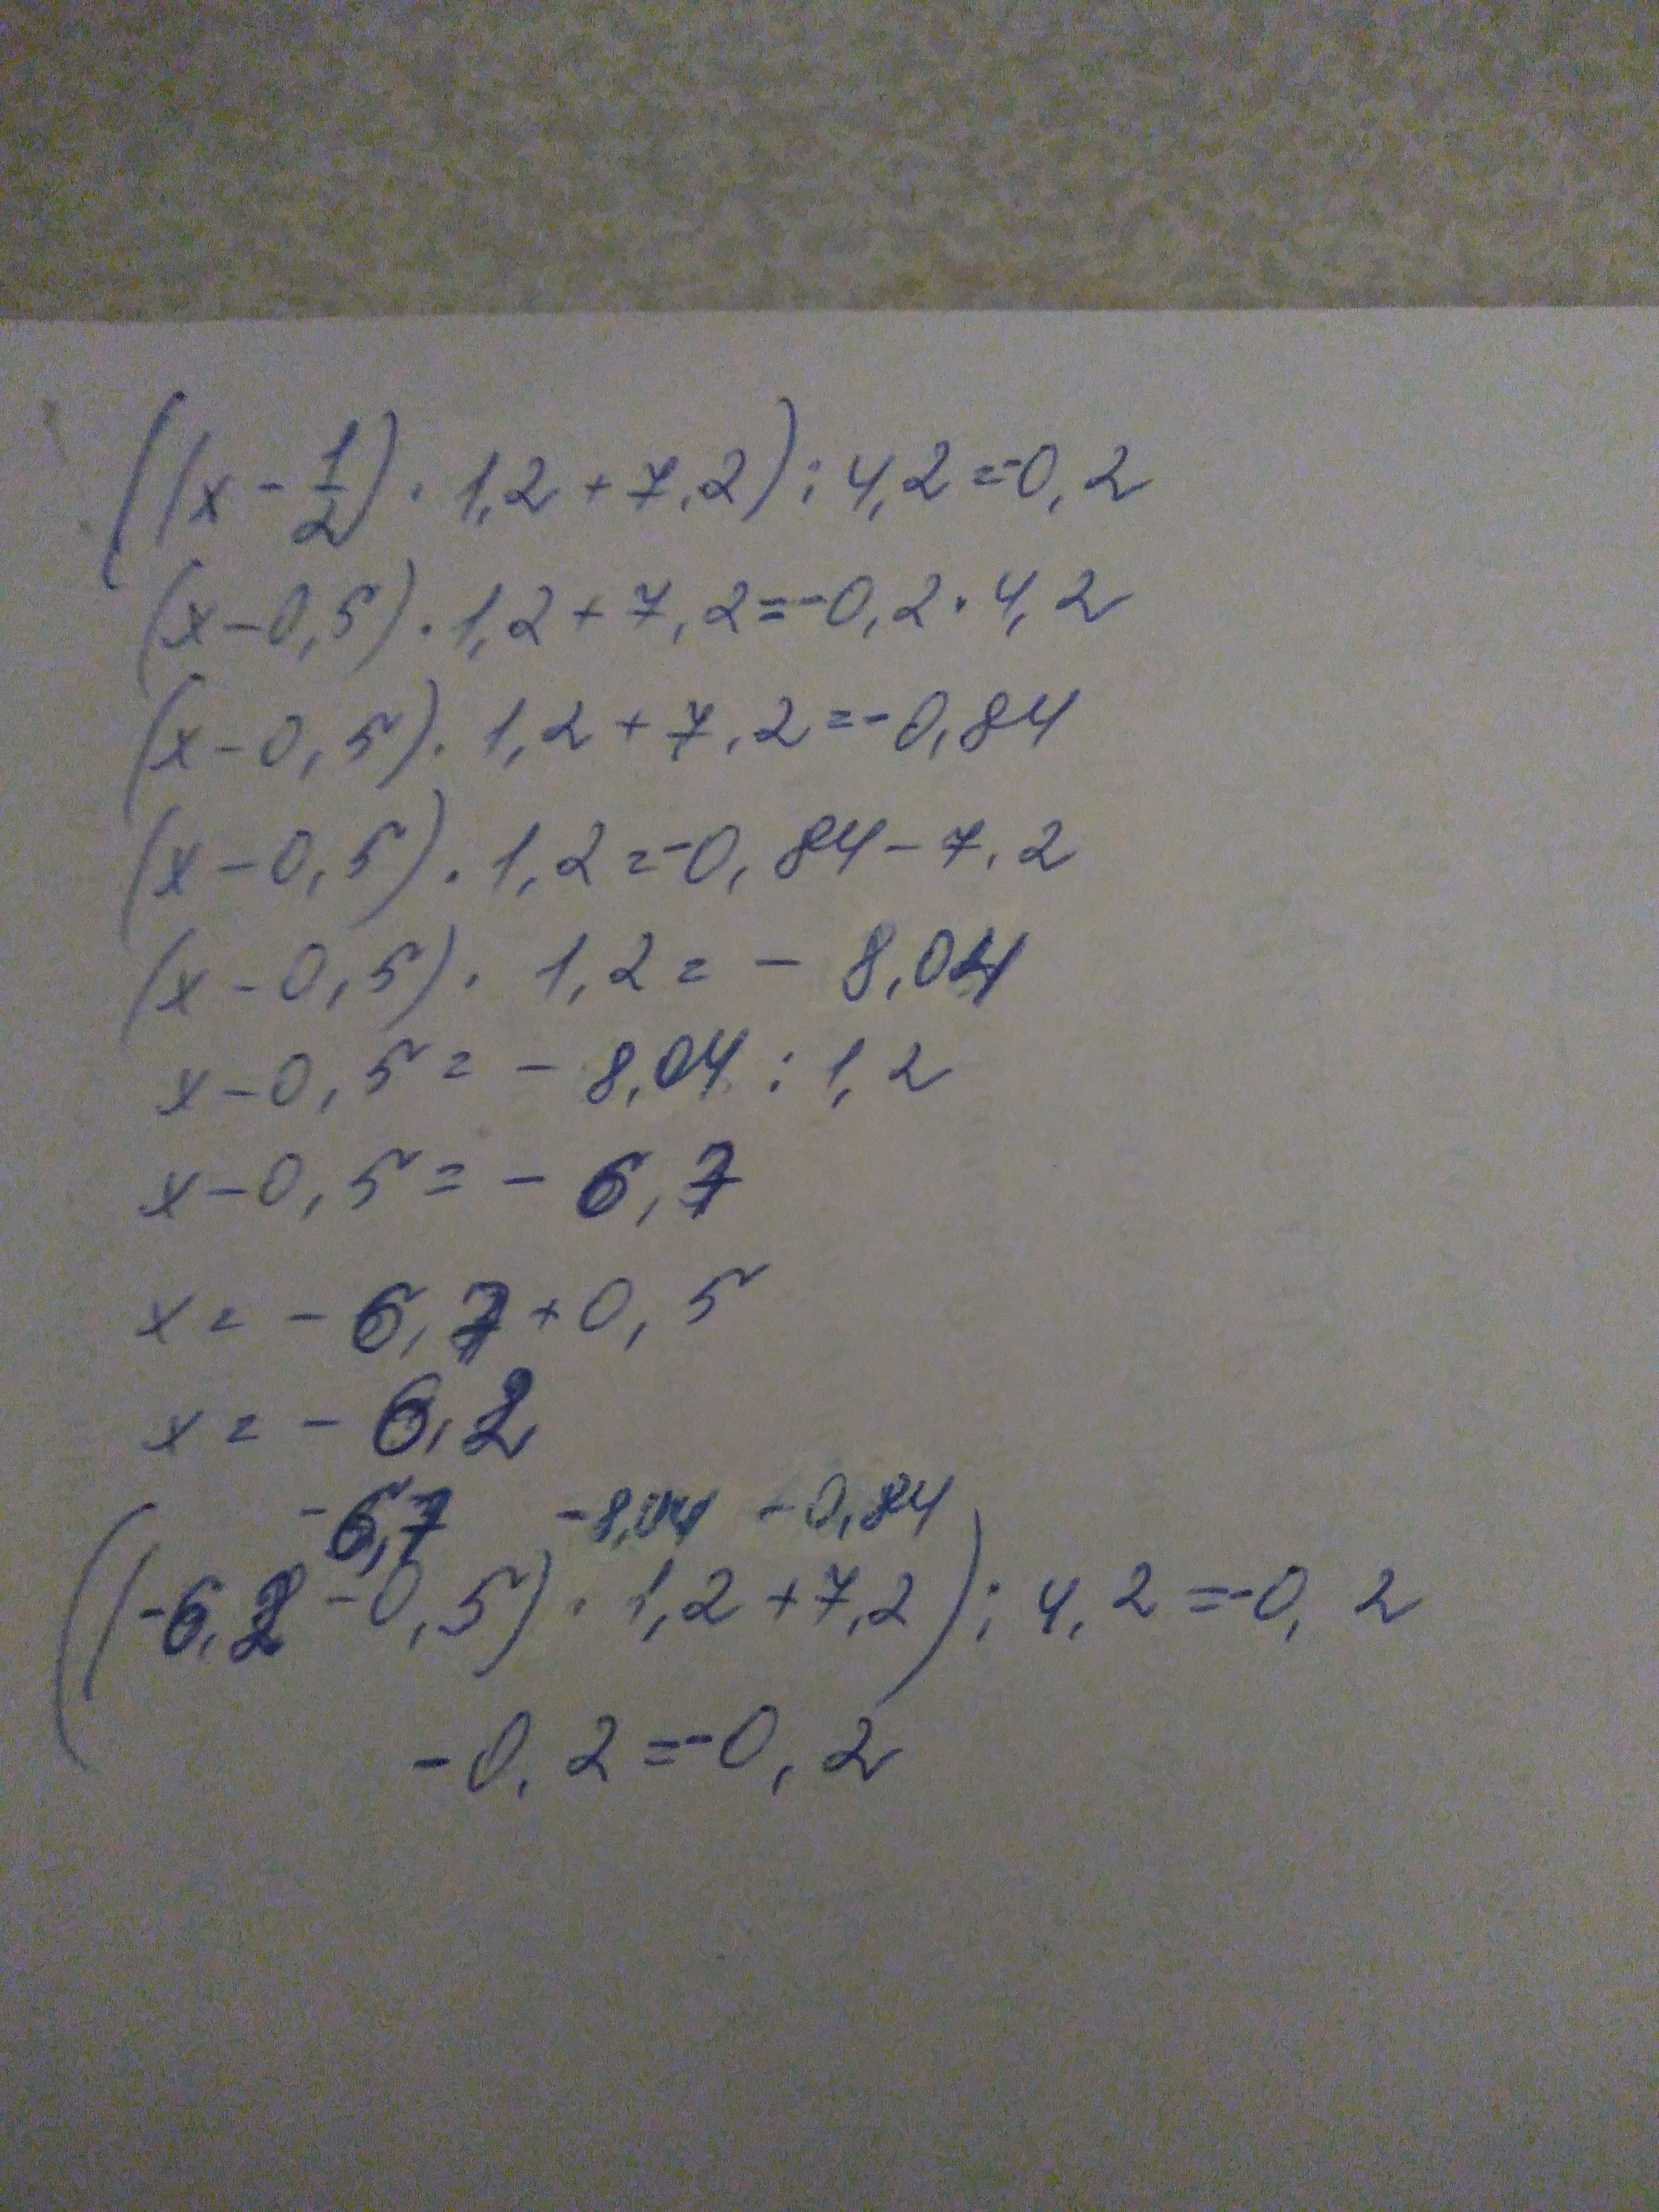 ((x - 1/2) · 1,2 + 7,2) : 4,2 = -0,2
(x - 0,5) · 1,2 + 7,2 = -0,2 · 4,2
(x - 0,5) · 1,2 + 7,2 = -0,84
(x - 0,5) · 1,2 = -0,84 - 7,2
(x - 0,5) · 1,2 = - 8,04
x - 0,5 = - 8,04 : 1,2
x - 0,5 = - 6,7
x = - 6,7 + 0,5
x = - 6,2
-6,7 -8,04 -0,84
((-6,2 - 0,5) · 1,2 + 7,2) : 4,2 = -0,2
-0,2 = -0,2